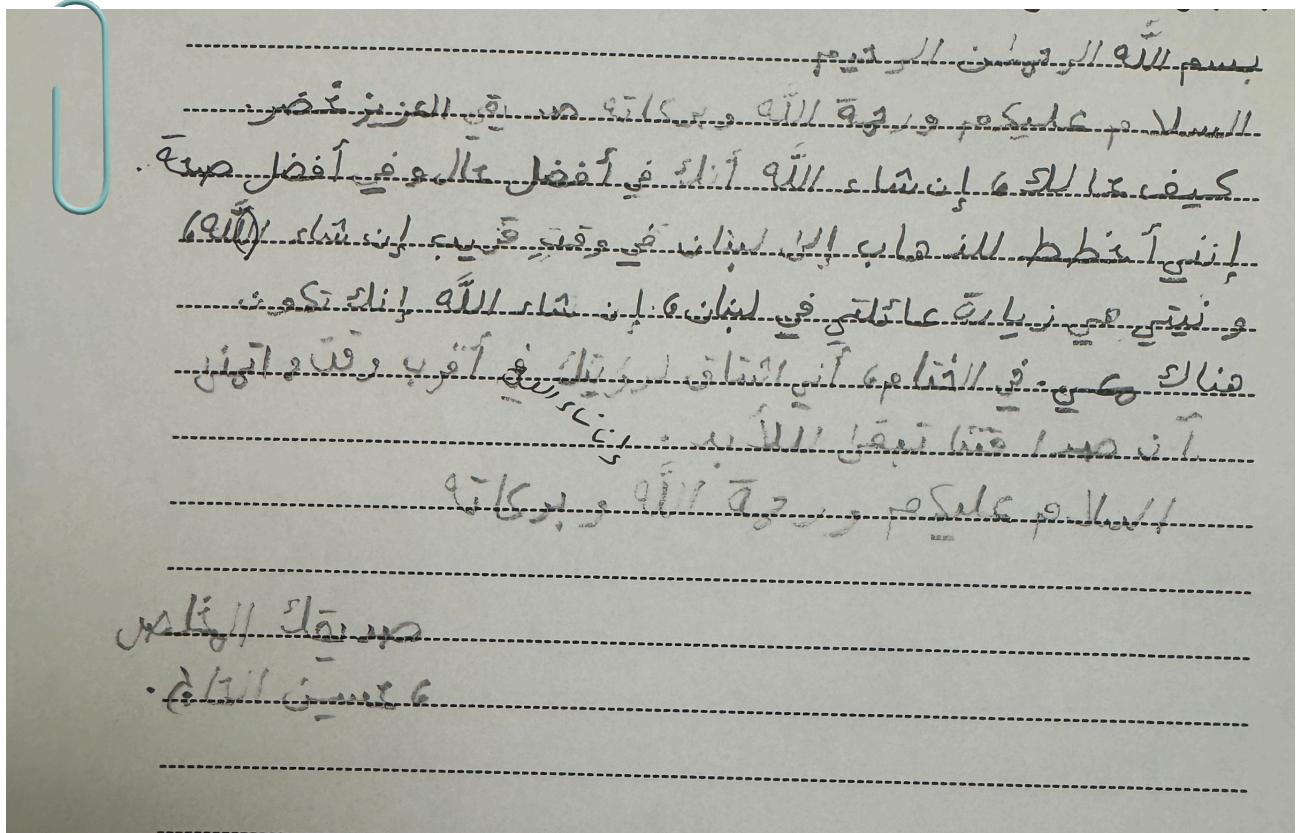 بسم اللَّه الرحمٰن الرحيم
السلام عليكم ورحمة اللَّه وبركاته صديقي العزيز خضر.
كيف حالك، إن شاء اللَّه أنك في أفضل حال وفي أفضل صحة.
إنني أخطط للذهاب إلى لبنان في وقتٍ قريب إن شاء (اللَّه)،
و نيتي هي زيارة عائلتي في لبنان، إن شاء اللَّه إنك تكون
هناك. في الختام، أني اشتاق لرؤيتك في أقرب وقت و اتمنى
أن صداقتنا تبقى لللأبد. إن شاء الله
السلام عليكم ورحمة اللَّه وبركاته
صديقك المخلص
، حسين التاج.